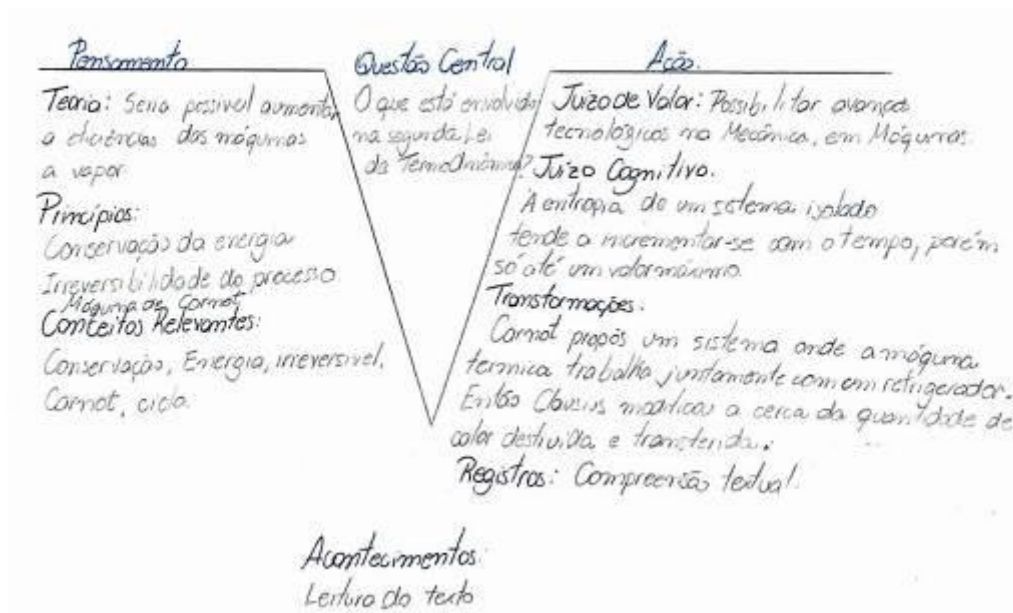 Pensamento
Teoria: Seria possível aumentar
a eficiências das máquinas
a vapor.
Princípios:
Conservação da energia
Irreversibilidade do processo
Máquina de Carnot
Conceitos Relevantes:
Conservação, Energia, irreversivel,
Carnot, ciclo.
Questão Central
O que está envolvido
na segunda Lei
da Termodinâmica?
Ação.
Juizo de Valor: Possibilitar avanços
tecnológicos na Mecânica, em Máquinas.
Juizo Cognitivo.
A entropia de um sistema isolado
tende a incrementar-se com o tempo, porém
só até um valor máximo.
Transformações.
Carnot propôs um sistema onde a máquina
termica trabalha juntamente com um refrigerador.
Então Clausius a cerca da quantidade de
calor destruída e transferida.
Registros: Compreensão textual.
Acontecimentos:
Leitura do texto